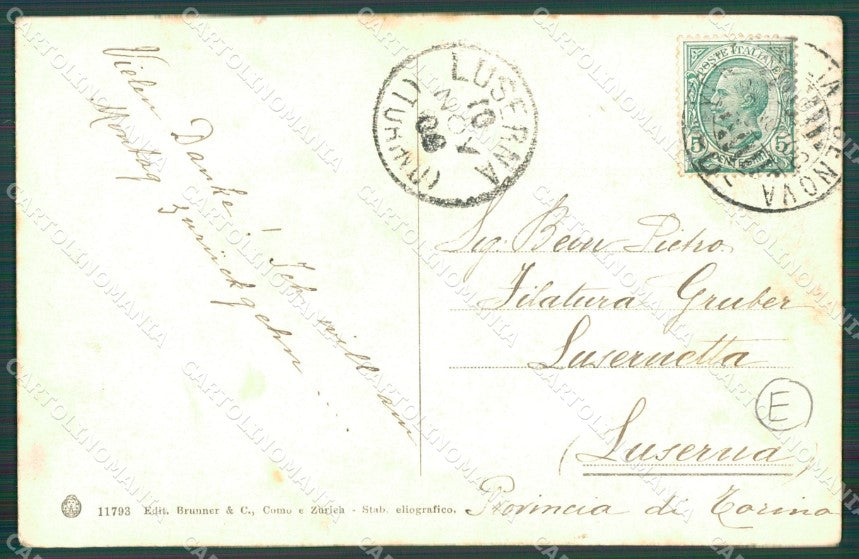 Vielen Danke! Ich will am
Montag zurückgehn....
LUSERNA
(TORINO)
10
NOV
09
POSTE ITALIANE
5 5
GENOVA
Sig. Beux Pietro
Filatura Gruber
Lusernetta
(Luserna)
Provincia di Torino
E
11793 Edit. Brunner & C., Como e Zürich - Stab. eliografico.
CARTOLINOMANIA